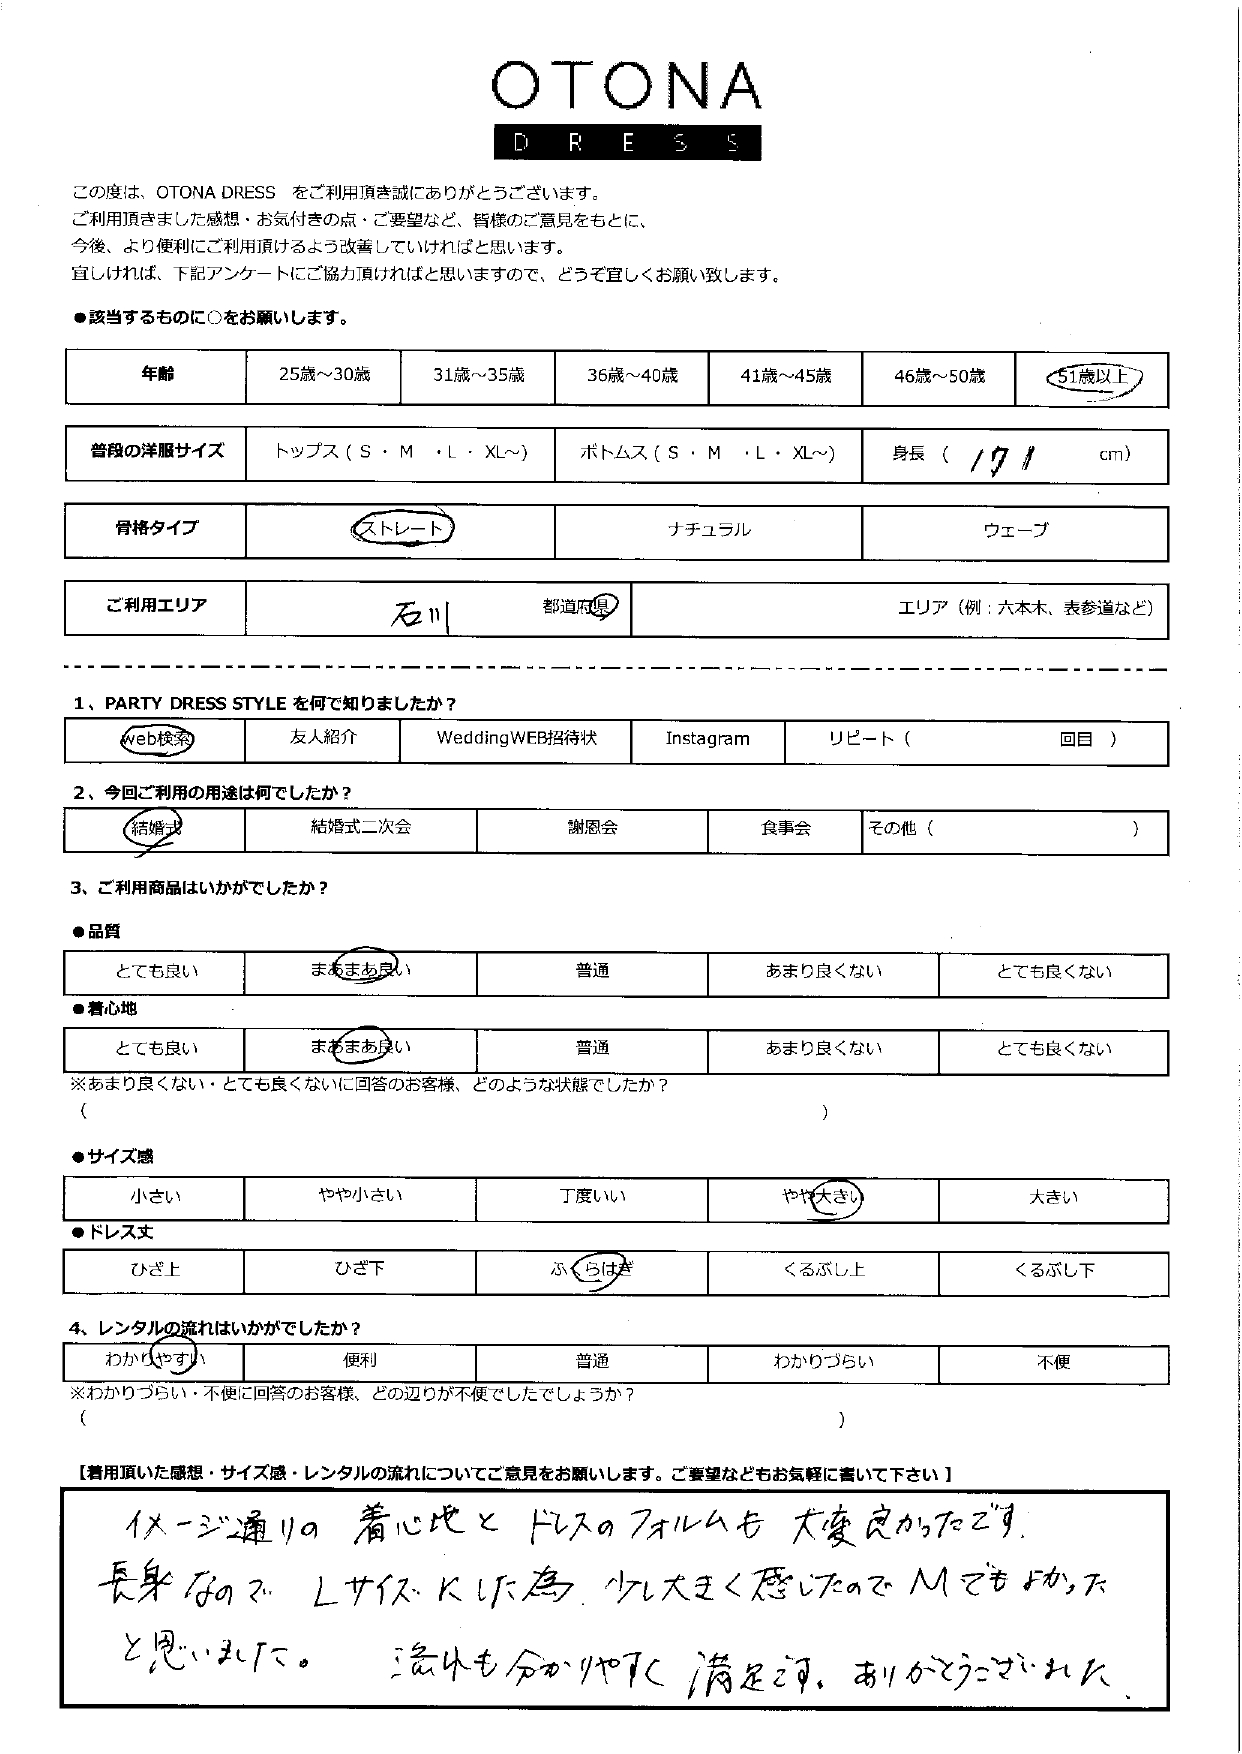 OTONA
DRESS
この度は、OTONA DRESS をご利用頂き誠にありがとうございます。
ご利用頂きました感想・お気付きの点・ご要望など、皆様のご意見をもとに、
今後、より便利にご利用頂けるよう改善していければと思います。
宜しければ、下記アンケートにご協力頂ければと思いますので、どうぞ宜しくお願い致します。
●該当するものに○をお願いします。
年齢 25歳～30歳 31歳～35歳 36歳～40歳 41歳～45歳 46歳～50歳 51歳以上
普段の洋服サイズ トップス ( S ・ M ・L ・ XL～) ボトムス ( S ・ M ・L ・ XL～) 身長 ( 171 cm)
骨格タイプ ストレート ナチュラル ウェーブ
ご利用エリア 石川 都道府県 エリア（例：六本木、表参道など）
1、PARTY DRESS STYLE を何で知りましたか？
web検索 友人紹介 WeddingWEB招待状 Instagram リピート（ 回目 ）
2、今回ご利用の用途は何でしたか？
結婚式 結婚式二次会 謝恩会 食事会 その他（ ）
3、ご利用商品はいかがでしたか？
●品質
とても良い まあまあ良い 普通 あまり良くない とても良くない
●着心地
とても良い まあまあ良い 普通 あまり良くない とても良くない
※あまり良くない・とても良くないに回答のお客様、どのような状態でしたか？
（ ）
●サイズ感
小さい やや小さい 丁度いい やや大きい 大きい
●ドレス丈
ひざ上 ひざ下 ふくらはぎ くるぶし上 くるぶし下
4、レンタルの流れはいかがでしたか？
わかりやすい 便利 普通 わかりづらい 不便
※わかりづらい・不便に回答のお客様、どの辺りが不便でしたでしょうか？
（ ）
【着用頂いた感想・サイズ感・レンタルの流れについてご意見をお願いします。ご要望などもお気軽に書いて下さい 】
イメージ通りの 着心地と ドレスのフォルムも 大変良かったです.
長身なので Lサイズにした為. 少し大きく感じたので Mでもよかった
と思いました。 流れも分かりやすく 満足です. ありがとうございました.